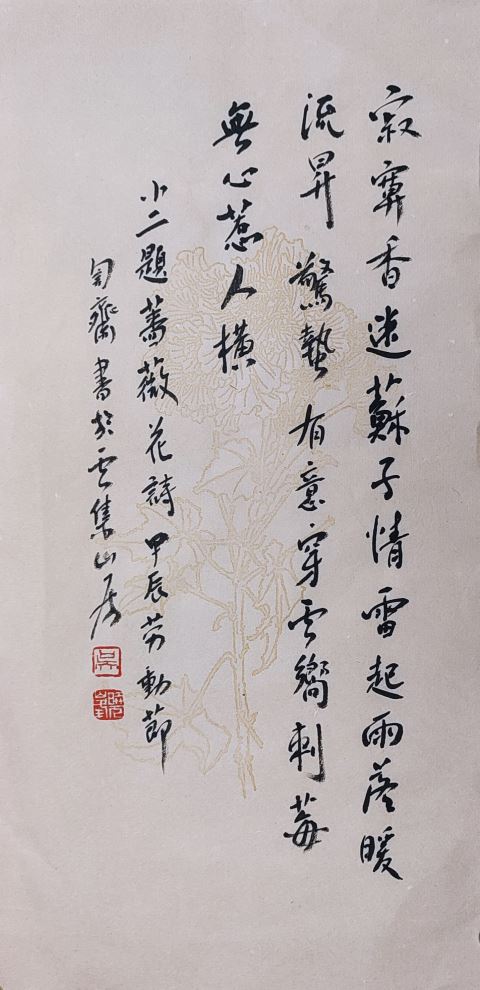 寂寞香迷蘇子情雷起雨落暖
流昇驚蟄有意穿云嚮刺莓
無心惹人橫
小二題薔薇花詩甲辰劳動節
齋書於云集山居
吳